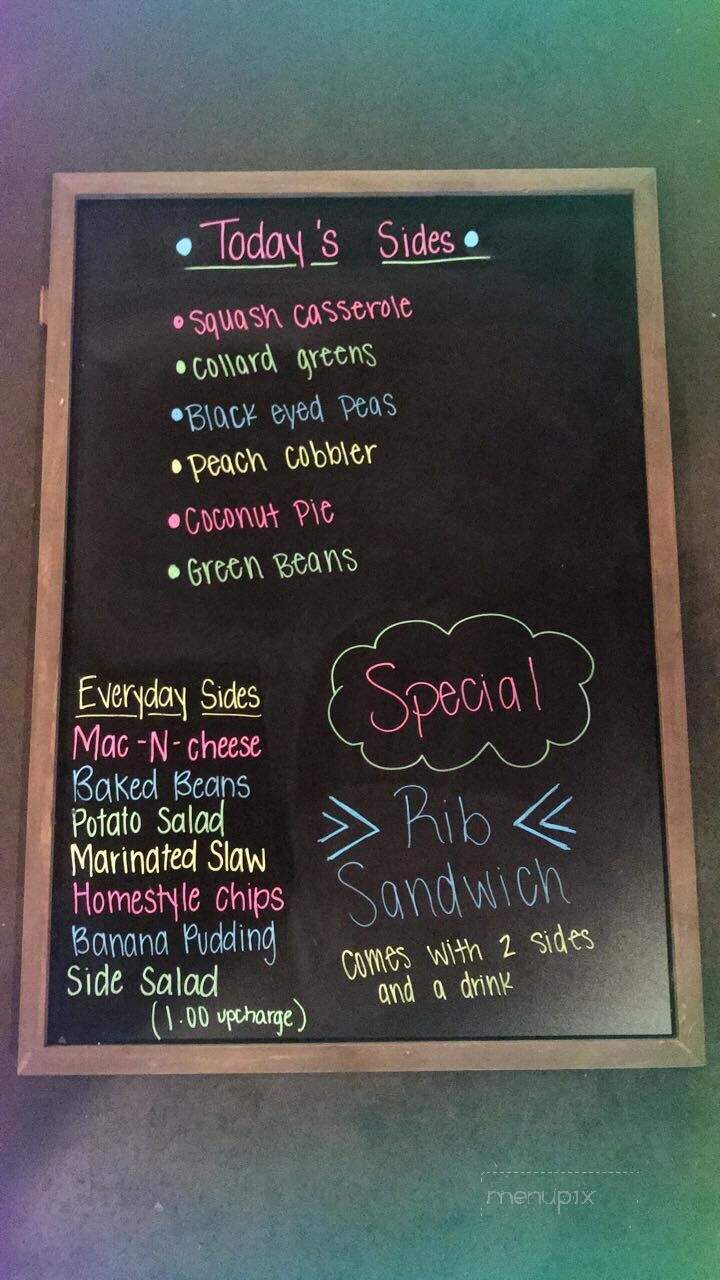 • Today's Sides •
• Squash casserole
• collard greens
• Black eyed Peas
• Peach cobbler
• Coconut Pie
• Green Beans
Everyday Sides
Mac-N-cheese
Baked Beans
Potato Salad
Marinated Slaw
Homestyle chips
Banana Pudding
Side Salad
(1.00 upcharge)
Special
>> Rib <<
Sandwich
comes with 2 sides
and a drink
menupix